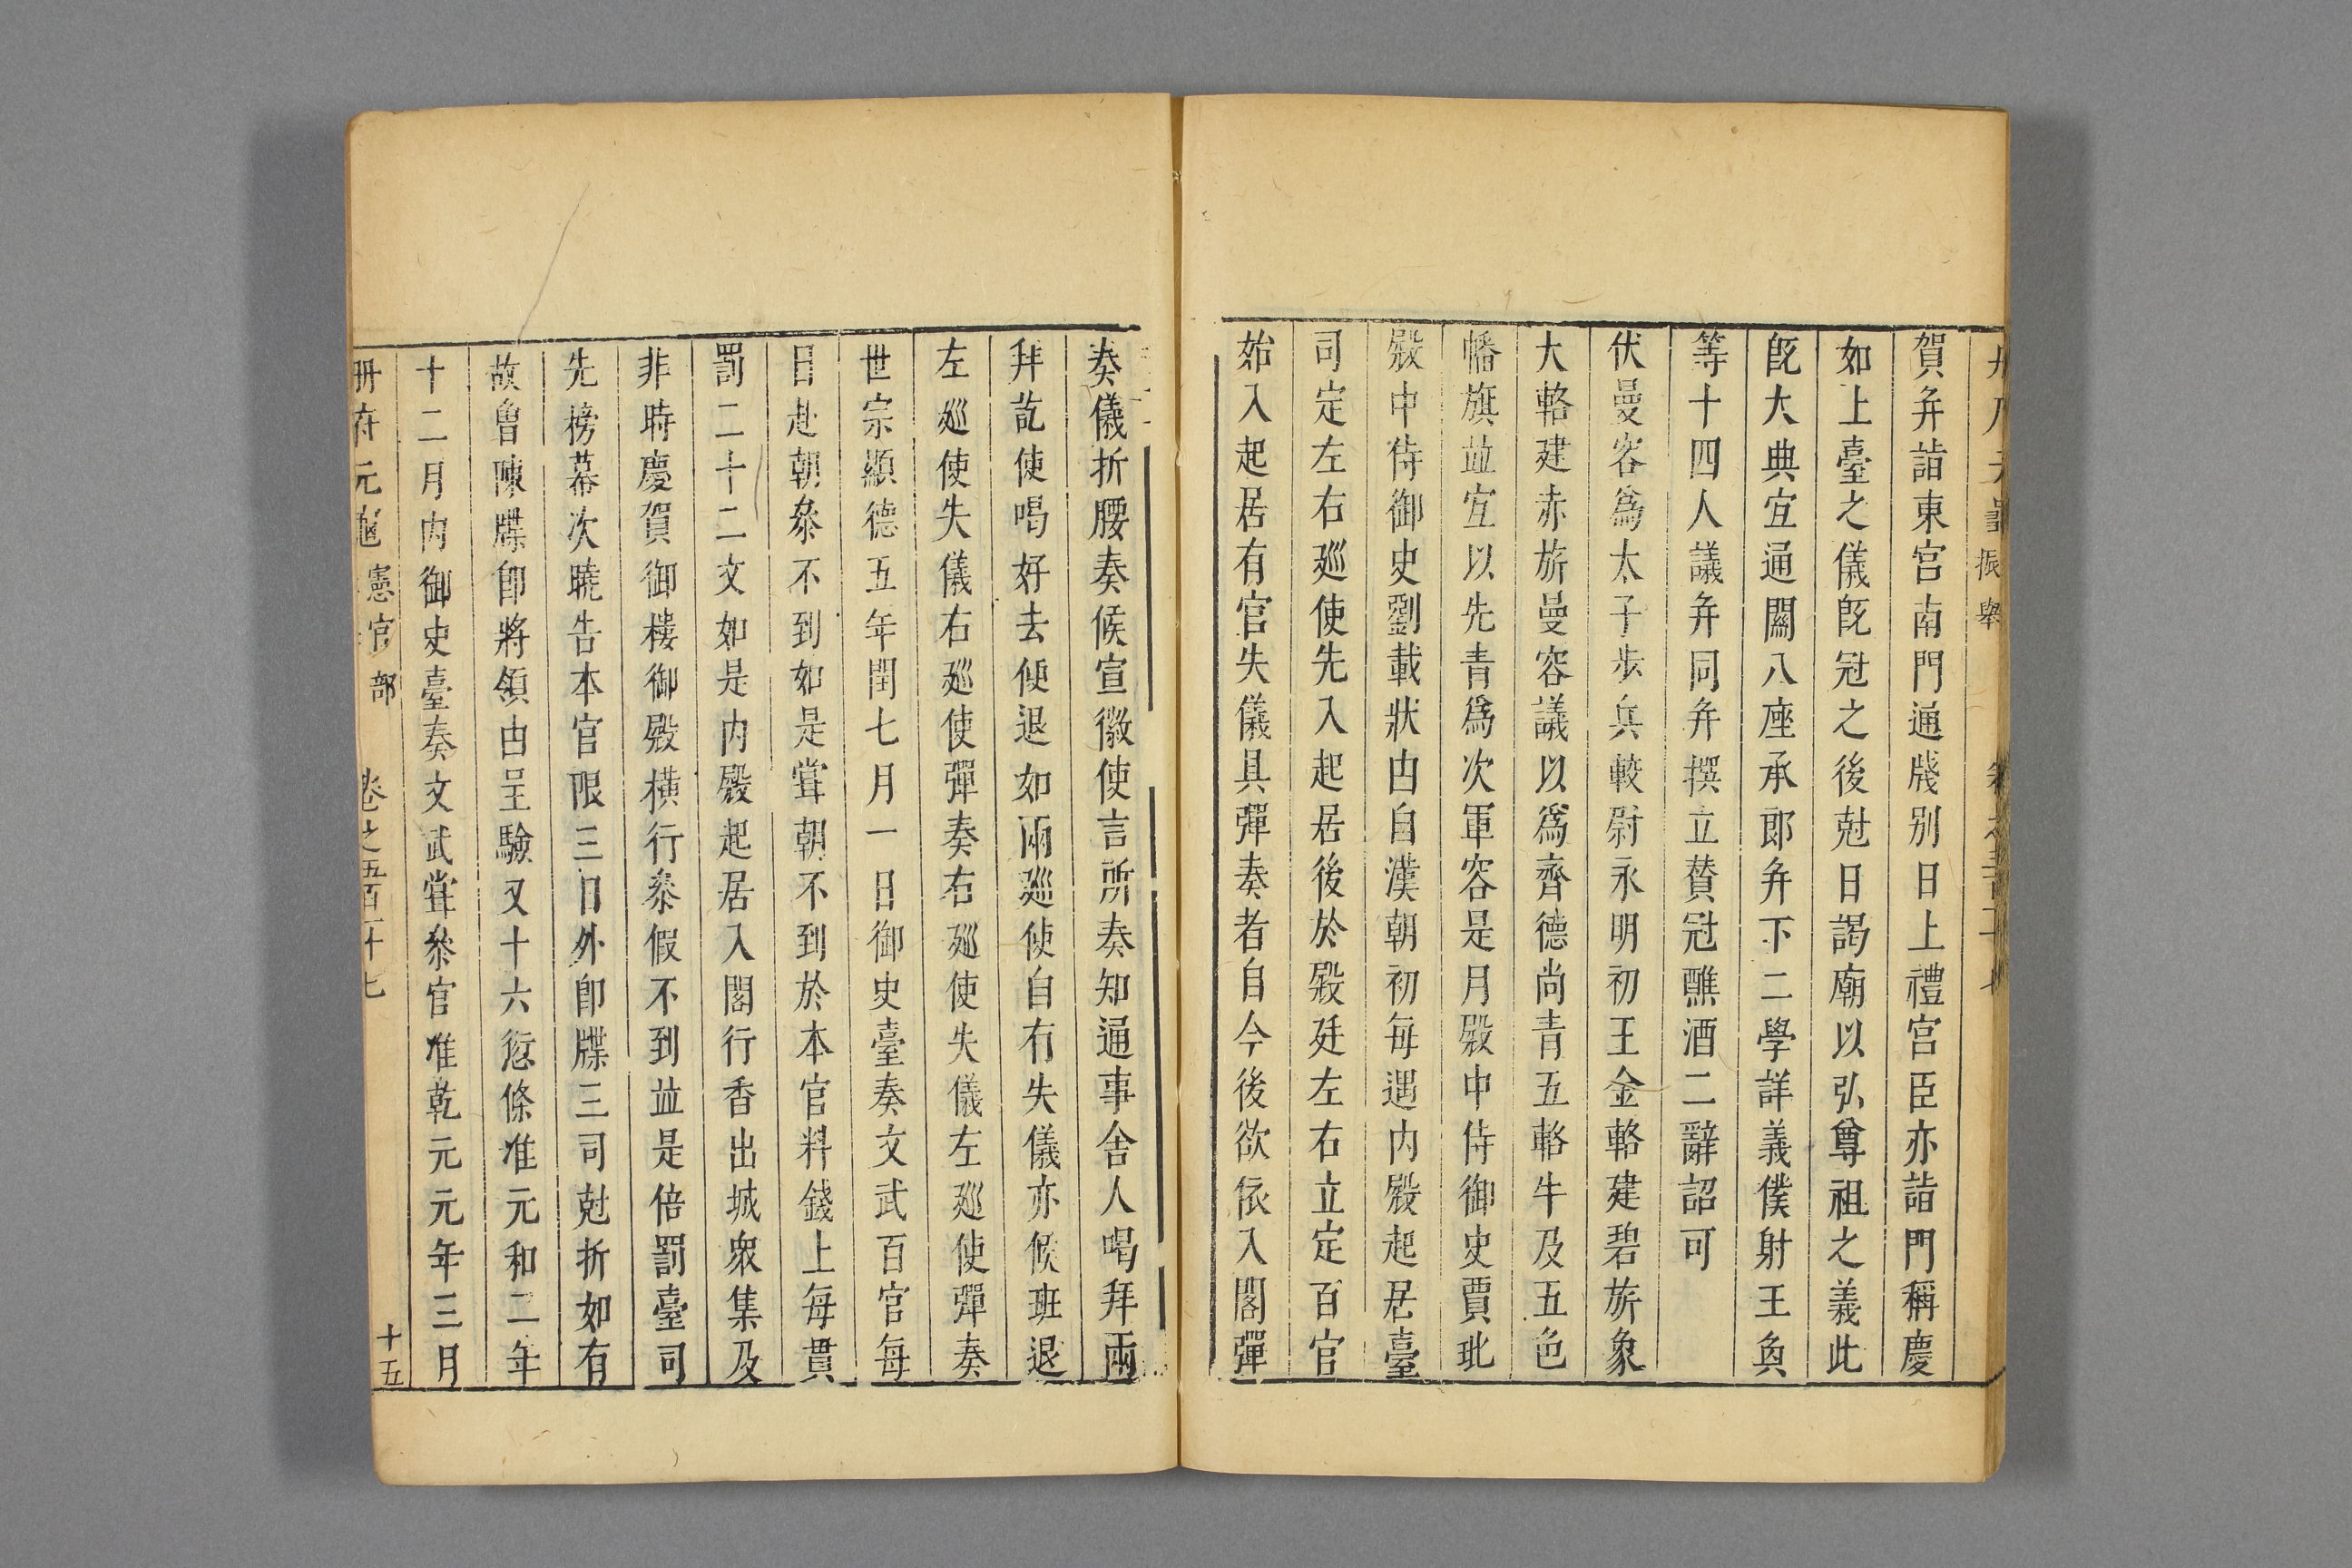 振舉
賀弁詣東宮南門通牋别日上禮宫臣亦詣門稱慶
如上臺之儀旣冠之後尅日謁廟以弘尊祖之義此
旣大典宜通關八座丞郎弁下二學詳義僕射王奐
等十四人議弁同弁撰立賛冠醮酒二辭詔可
伏曼容爲太子步兵較尉永明初王金輅建碧旂象
大輅建赤旂曼容議以爲齊德尚青五輅牛及五色
幡旗並宜以先青爲次軍容是月殿中侍御史賈玭
殿中侍御史劉載狀由自漢朝初每遇内殿起居臺
司定左右廵使先入起居後於殿廷左右立定百官
始入起居有官失儀具彈奏者自今後欲依入閣彈
奏儀折腰奏候宣徽使言所奏知通事舍人喝拜兩
拜訖使喝好去便退如兩廵使自有失儀亦候班退
左廵使失儀右廵使彈奏右廵使失儀左廵使彈奏
世宗顯德五年閏七月一日御史臺奏文武百官每
日赴朝叅不到如是甞朝不到於本官料錢上每貫
罰二十二文如是内殿起居入閣行香出城衆集及
非時慶賀御樓御殿横行叅假不到並是倍罰臺司
先榜幕次曉告本官限三日外卽牒三司尅折如有
故曾陳牒卽將領由呈驗又十六愆條准元和二年
十二月内御史臺奏文武甞叅官准乾元元年三月
冊府元龜憲官部 卷之五百十七 十五